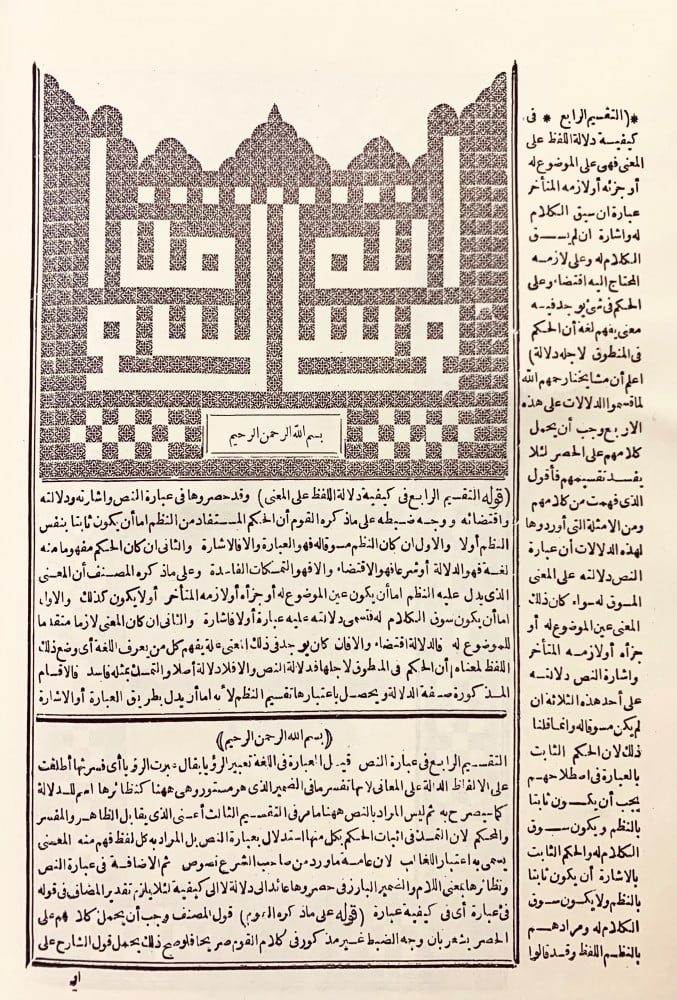 *(التقسيم الرابع * فى
كيفية دلالة اللفظ على
المعنى فهى على الموضوع له
أو جزئه أو لازمه المتأخر
عبارة ان سيق الكلام
له واشارة ان لم يسق
الكلام له وعلى لازمه
المحتاج اليه اقتضاء وعلى
الحكم فى شئ يوجد فيه
معنى يفهم لغة أن الحكم
فى المنطوق لاجله دلالة)
اعلم أن مشايخنا رحمهم الله
لما قسموا الدلالات على هذه
الاربع وجب أن يحمل
كلامهم على الحصر لئلا
يفسد تقسيمهم فأقول
الذى فهمت من كلامهم
ومن الامثلة التى أوردوها
لهذه الدلالات أن عبارة
النص دلالته على المعنى
المسوق له سواء كان ذلك
المعنى عين الموضوع له أو
جزأه أو لازمه المتأخر
واشارة النص دلالته
على أحد هذه الثلاثة ان
لم يكن مسوقا له وانما قلنا
ذلك لان الحكم الثابت
بالعبارة فى اصطلاحهم
يجب أن يكون ثابتا
بالنظم ويكون سوق
الكلام له والحكم الثابت
بالاشارة أن يكون ثابتا
بالنظم ولا يكون سوق
الكلام له ومرادهم
بالنظم اللفظ وقد قالوا
بسم الله الرحمن الرحيم
(قوله التقسيم الرابع فى كيفية دلالة اللفظ على المعنى) وقد حصروها فى عبارة النص واشارته ودلالته
واقتضائه ووجه ضبطه على ما ذكره القوم أن الحكم المستفاد من النظم اما أن يكون ثابتا بنفس
النظم أولا والاول ان كان النظم مسوقا له فهو العبارة والا فالاشارة والثانى ان كان الحكم مفهوما منه
لغة فهو الدلالة أو شرعا فهو الاقتضاء والا فهو التمسكات الفاسدة وعلى ما ذكره المصنف أن المعنى
الذى يدل عليه النظم اما أن يكون عين الموضوع له أو جزأه أو لازمه المتأخر أولا يكون كذلك والاول
اما أن يكون سوق الكلام له فتسمى دلالته عليه عبارة أولا فاشارة والثانى ان كان المعنى لازما متقدما
للموضوع له فالدلالة اقتضاء والا فان كان يوجد فى ذلك المعنى علة يفهم كل من يعرف اللغة أى وضع ذلك
اللفظ لمعناه أن الحكم فى المنطوق لاجلها فدلالة النص والا فلا دلالة أصلا والتمسك بمثله فاسد فالاقسام
المذكورة صفة الدلالة ويحصل باعتبارها تقسيم النظم لأنه اما أن يدل بطريق العبارة أو الاشارة
(بسم الله الرحمن الرحيم)
التقسيم الرابع فى عبارة النص قيل العبارة فى اللغة تعبير الرؤيا يقال عبرت الرؤيا أى فسرتها أطلقت
على الالفاظ الدالة على المعانى لانها تفسر ما فى الضمير الذى هو مستور وهى ههنا كنظائرها اسم للدلالة
كما سيصرح به ثم ليس المراد بالنص ههنا ما مر فى التقسيم الثالث أعنى الذى يقابل الظاهر والمفسر
والمحكم لان التمسك فى اثبات الحكم بكل منها استدلال بعبارة النص بل المراد به كل لفظ فهم منه المعنى
يسمى به اعتبار اللغالب لان عامة ما ورد من صاحب الشرع نصوص ثم الاضافة فى عبارة النص
ونظائرها بمعنى اللام والضمير البارز فى حصروها عائد الى دلالة لا الى كيفية لئلا يلزم تقدير المضاف فى قوله
فى عبارة أى فى كيفية عبارة (قوله على ما ذكره القوم) قول المصنف وجب أن يحمل كلامهم على
الحصر يشعر بان وجه الضبط غير مذكور فى كلام القوم صريحا فلو صح ذلك يحمل قول الشارح على